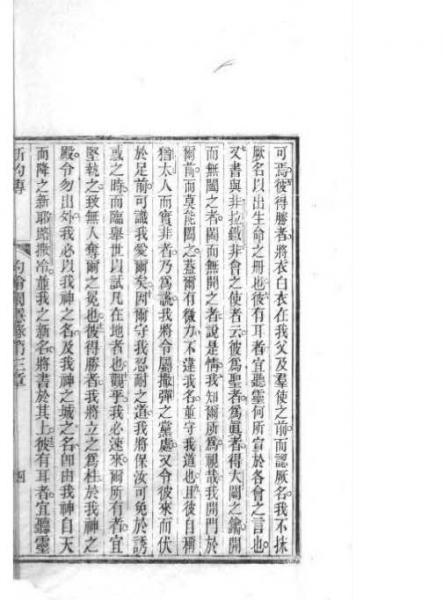 可焉彼得勝者將衣白衣在我父及羣使之前而認厥名我不抹
厥名以出生命之冊也彼有耳者宜聽靈何所宣於各會之言也
又書與非拉鐵非會之使者云彼為聖者為眞者得大闢之鑰開
而無闔之者闔而無開之者說是情我知爾所為視哉我開門於
爾前而莫能闔之蓋爾有微力不違我名並守我道也且彼自稱
猶太人而實非者乃為謊我將令屬撒彈之黨處又令彼來而伏
於足前可識我愛爾矣因爾守我忍耐之道我將保汝可免於誘
惑之時而臨舉世以試凡在地者也觀乎我必速來爾所有者宜
堅執之致無人奪爾之冕也彼得勝者我將立之為柱於我神之
殿令勿出外我必以我神之名及我神之城之名卽由我神自天
而降之新耶路撒冷並我之新名將書於其上彼有耳者宜聽靈
新約傳
第三章
四